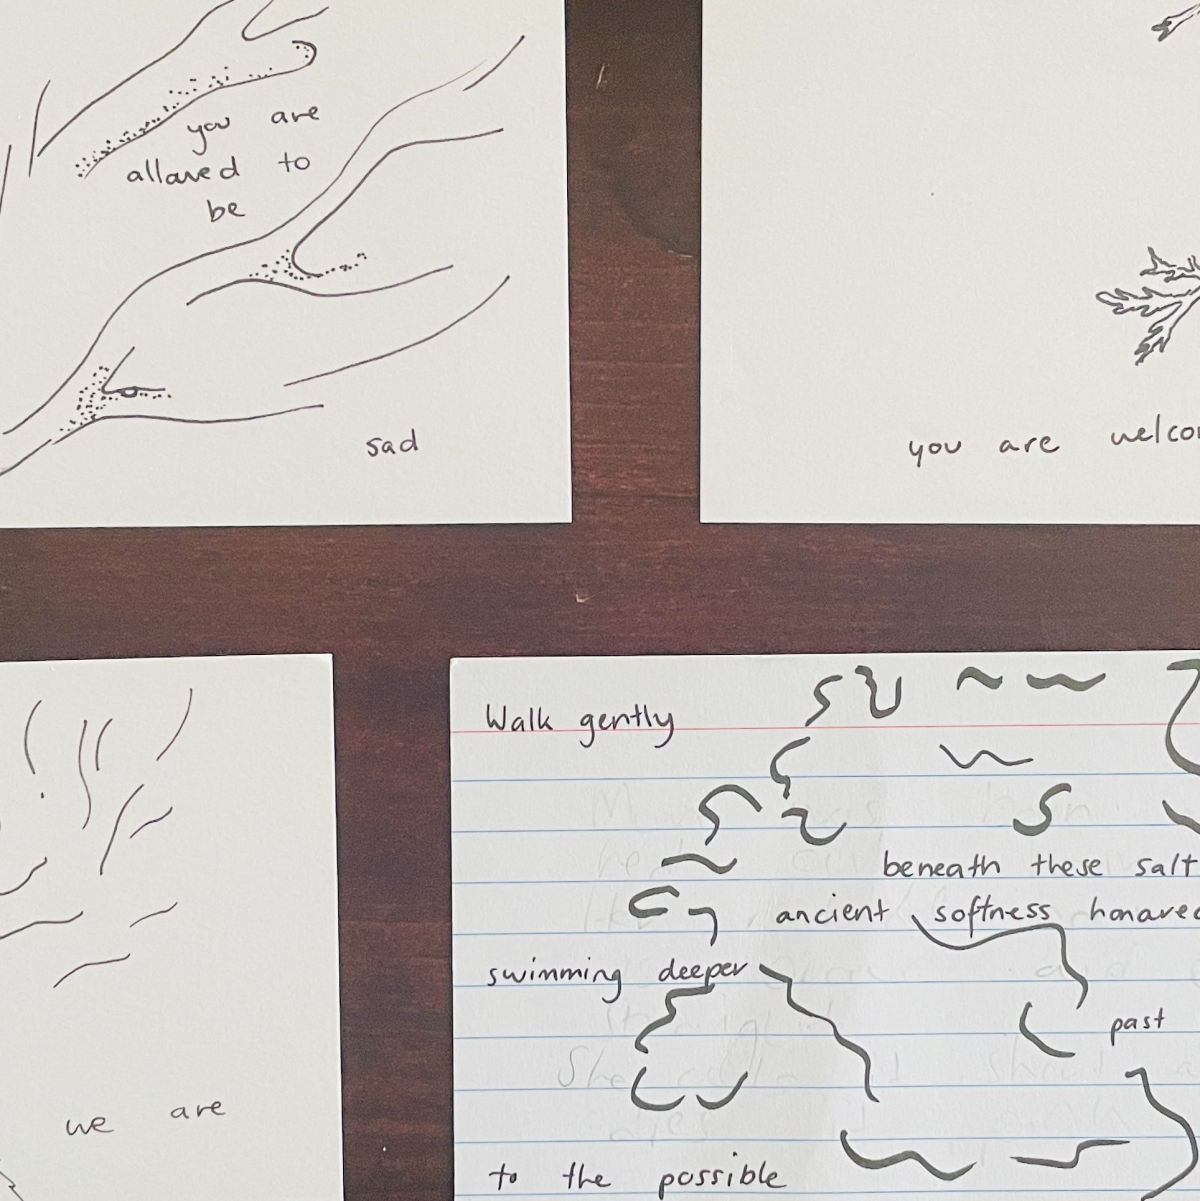 you are
allowed to
be
sad
you are welco
we are
Walk gently
beneath these salt
ancient softness honored
swimming deeper
past
to the possible